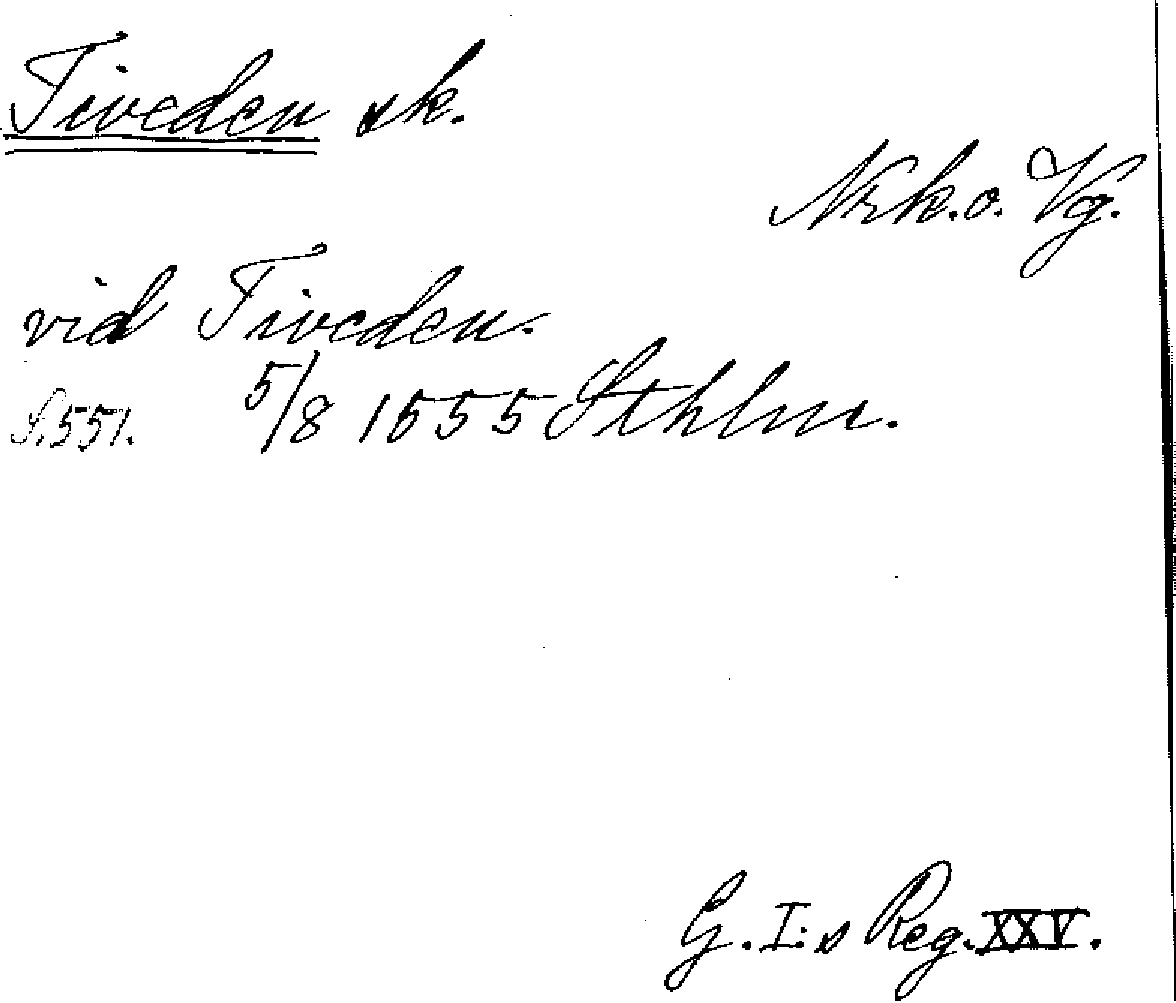 Tiveden sk.
Nrk. o. Vg.
vid Tiveden.
S. 551. 5/8 1555 Sthlm.
G. I:s Reg. XXV.